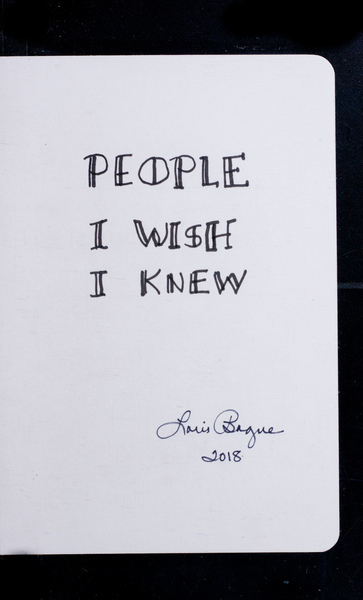 PEOPLE
I WISH
I KNEW
Loris Bogue
2018